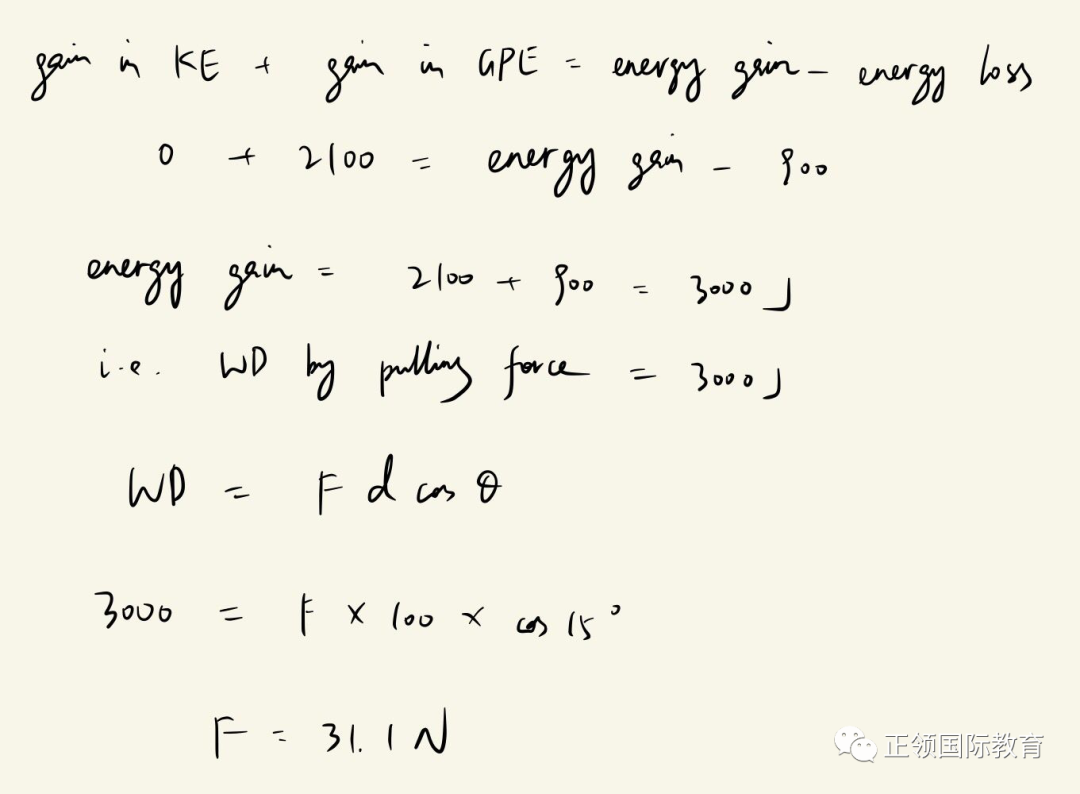 gain in KE + gain in GPE = energy gain - energy loss
0 + 2100 = energy gain - 900
energy gain = 2100 + 900 = 3000 J
i.e. WD by pulling force = 3000 J
WD = F d cos θ
3000 = F × 100 × cos 15°
F = 31.1 N
正领国际教育